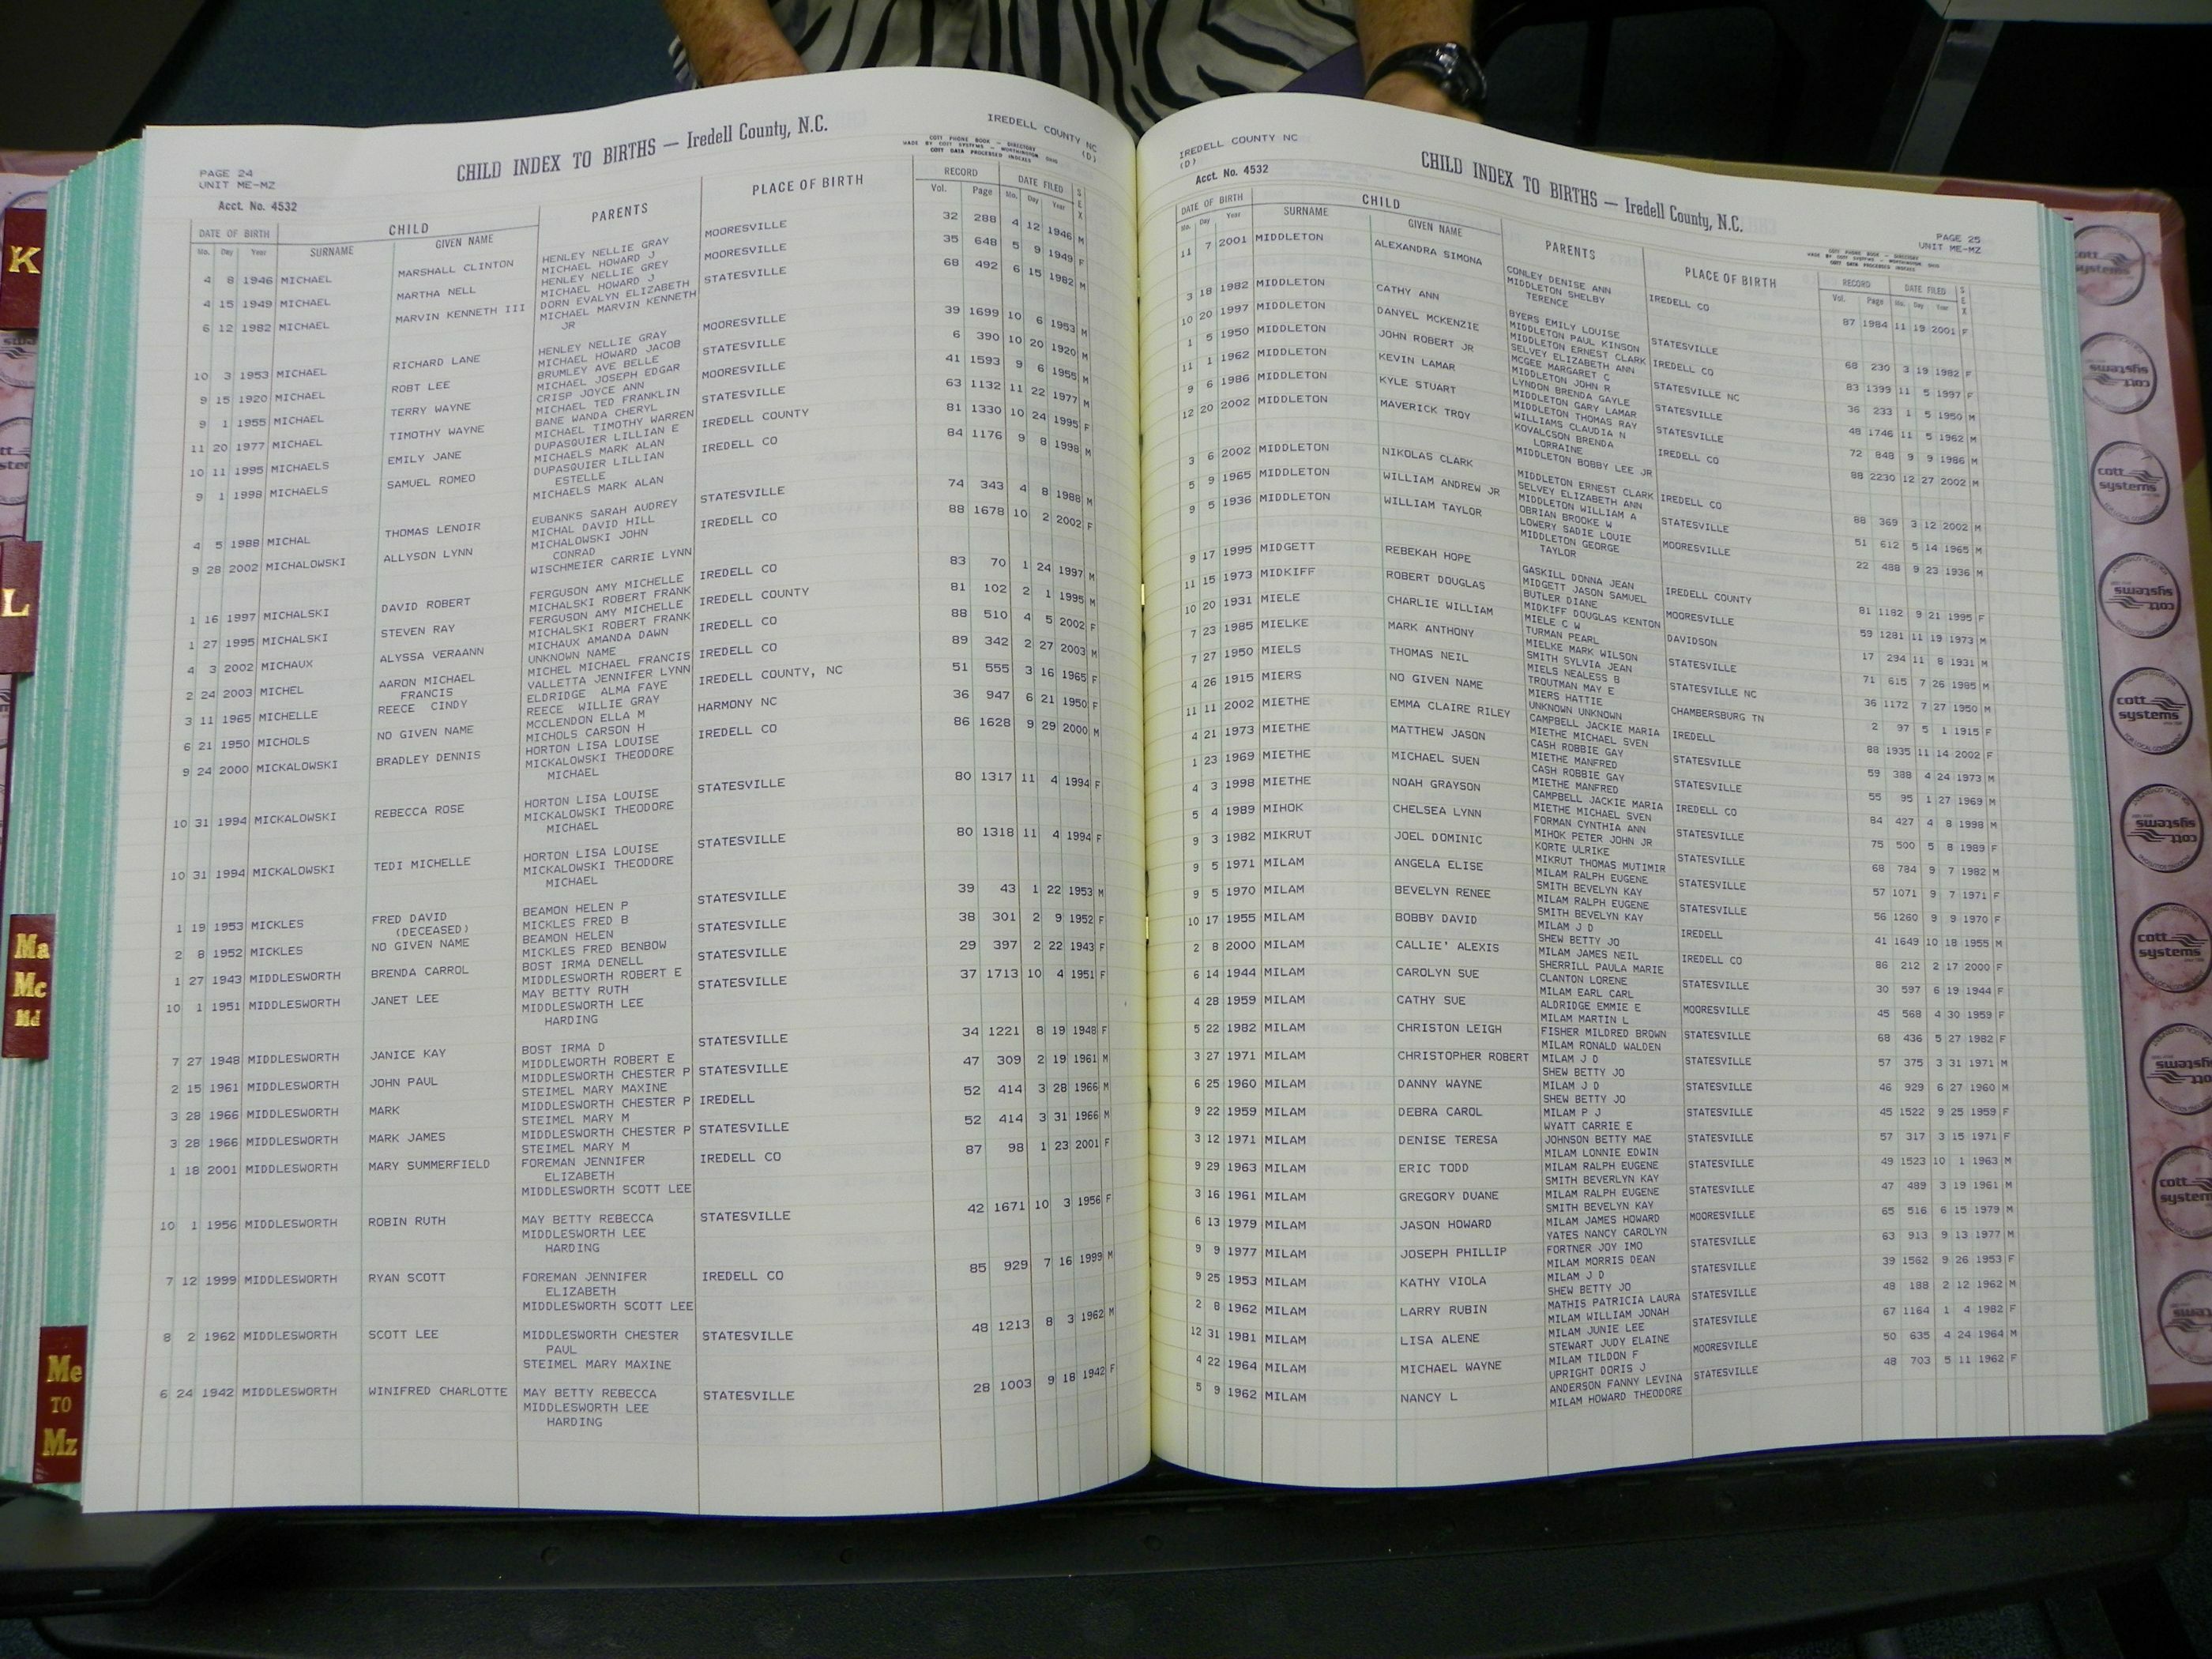 K
L
Ma
Mc
Md
Me
TO
Mz
PAGE 24
UNIT ME-MZ
Acct. No. 4532
CHILD INDEX TO BIRTHS — Iredell County, N.C.
IREDELL COUNTY NC
(D)
COTT PHONE BOOK - DIRECTORY
MADE BY COTT SYSTEMS - WORTHINGTON OHIO
COTT DATA PROCESSED INDEXES
DATE OF BIRTH CHILD PARENTS PLACE OF BIRTH RECORD DATE FILED SEX
Mo. Day Year SURNAME GIVEN NAME Vol. Page Mo. Day Year
4 8 1946 MICHAEL MARSHALL CLINTON HENLEY NELLIE GRAY MOORESVILLE 32 288 4 12 1946 M
MICHAEL HOWARD J
4 15 1949 MICHAEL MARTHA NELL HENLEY NELLIE GREY MOORESVILLE 35 648 5 9 1949 F
MICHAEL HOWARD J
6 12 1982 MICHAEL MARVIN KENNETH III DORN EVALYN ELIZABETH STATESVILLE 68 492 6 15 1982 M
MICHAEL MARVIN KENNETH
JR
10 3 1953 MICHAEL RICHARD LANE HENLEY NELLIE GRAY MOORESVILLE 39 1699 10 6 1953 M
MICHAEL HOWARD JACOB
9 15 1920 MICHAEL ROBT LEE BRUMLEY AVE BELLE STATESVILLE 6 390 10 20 1920 M
MICHAEL JOSEPH EDGAR
9 1 1955 MICHAEL TERRY WAYNE CRISP JOYCE ANN MOORESVILLE 41 1593 9 6 1955 M
MICHAEL TED FRANKLIN
11 20 1977 MICHAEL TIMOTHY WAYNE BANE WANDA CHERYL STATESVILLE 63 1132 11 22 1977 M
MICHAEL TIMOTHY WARREN
10 11 1995 MICHAELS EMILY JANE DUPASQUIER LILLIAN E IREDELL COUNTY 81 1330 10 24 1995 F
MICHAELS MARK ALAN
9 1 1998 MICHAELS SAMUEL ROMEO DUPASQUIER LILLIAN IREDELL CO 84 1176 9 8 1998 M
ESTELLE
MICHAELS MARK ALAN
4 5 1988 MICHAL THOMAS LENOIR EUBANKS SARAH AUDREY STATESVILLE 74 343 4 8 1988 M
MICHAL DAVID HILL
9 28 2002 MICHALOWSKI ALLYSON LYNN MICHALOWSKI JOHN IREDELL CO 88 1678 10 2 2002 F
CONRAD
WISCHMEIER CARRIE LYNN
1 16 1997 MICHALSKI DAVID ROBERT FERGUSON AMY MICHELLE IREDELL CO 83 70 1 24 1997 M
MICHALSKI ROBERT FRANK
1 27 1995 MICHALSKI STEVEN RAY FERGUSON AMY MICHELLE IREDELL COUNTY 81 102 2 1 1995 M
MICHALSKI ROBERT FRANK
4 3 2002 MICHAUX ALYSSA VERAANN MICHAUX AMANDA DAWN IREDELL CO 88 510 4 5 2002 F
UNKNOWN NAME
2 24 2003 MICHEL AARON MICHAEL MICHEL MICHAEL FRANCIS IREDELL CO 89 342 2 27 2003 M
FRANCIS VALLETTA JENNIFER LYNN
3 11 1965 MICHELLE REECE CINDY ELDRIDGE ALMA FAYE IREDELL COUNTY, NC 51 555 3 16 1965 F
REECE WILLIE GRAY
6 21 1950 MICHOLS NO GIVEN NAME MCCLENDON ELLA M HARMONY NC 36 947 6 21 1950 F
MICHOLS CARSON H
9 24 2000 MICKALOWSKI BRADLEY DENNIS HORTON LISA LOUISE IREDELL CO 86 1628 9 29 2000 M
MICKALOWSKI THEODORE
MICHAEL
10 31 1994 MICKALOWSKI REBECCA ROSE HORTON LISA LOUISE STATESVILLE 80 1317 11 4 1994 F
MICKALOWSKI THEODORE
MICHAEL
10 31 1994 MICKALOWSKI TEDI MICHELLE HORTON LISA LOUISE STATESVILLE 80 1318 11 4 1994 F
MICKALOWSKI THEODORE
MICHAEL
1 19 1953 MICKLES FRED DAVID BEAMON HELEN P STATESVILLE 39 43 1 22 1953 M
(DECEASED) MICKLES FRED B
2 8 1952 MICKLES NO GIVEN NAME BEAMON HELEN STATESVILLE 38 301 2 9 1952 F
MICKLES FRED BENBOW
1 27 1943 MIDDLESWORTH BRENDA CARROL BOST IRMA DENELL STATESVILLE 29 397 2 22 1943 F
MIDDLESWORTH ROBERT E
10 1 1951 MIDDLESWORTH JANET LEE MAY BETTY RUTH STATESVILLE 37 1713 10 4 1951 F
MIDDLESWORTH LEE
HARDING
7 27 1948 MIDDLESWORTH JANICE KAY BOST IRMA D STATESVILLE 34 1221 8 19 1948 F
MIDDLEWORTH ROBERT E
2 15 1961 MIDDLESWORTH JOHN PAUL MIDDLESWORTH CHESTER P STATESVILLE 47 309 2 19 1961 M
STEIMEL MARY MAXINE
3 28 1966 MIDDLESWORTH MARK MIDDLESWORTH CHESTER P IREDELL 52 414 3 28 1966 M
STEIMEL MARY M
3 28 1966 MIDDLESWORTH MARK JAMES MIDDLESWORTH CHESTER P STATESVILLE 52 414 3 31 1966 M
STEIMEL MARY M
1 18 2001 MIDDLESWORTH MARY SUMMERFIELD FOREMAN JENNIFER IREDELL CO 87 98 1 23 2001 F
ELIZABETH
MIDDLESWORTH SCOTT LEE
10 1 1956 MIDDLESWORTH ROBIN RUTH MAY BETTY REBECCA STATESVILLE 42 1671 10 3 1956 F
MIDDLESWORTH LEE
HARDING
7 12 1999 MIDDLESWORTH RYAN SCOTT FOREMAN JENNIFER IREDELL CO 85 929 7 16 1999 M
ELIZABETH
MIDDLESWORTH SCOTT LEE
8 2 1962 MIDDLESWORTH SCOTT LEE MIDDLESWORTH CHESTER STATESVILLE 48 1213 8 3 1962 M
PAUL
STEIMEL MARY MAXINE
6 24 1942 MIDDLESWORTH WINIFRED CHARLOTTE MAY BETTY REBECCA STATESVILLE 28 1003 9 18 1942 F
MIDDLESWORTH LEE
HARDING
IREDELL COUNTY NC
(D)
Acct. No. 4532
CHILD INDEX TO BIRTHS — Iredell County, N.C.
PAGE 25
UNIT ME-MZ
COTT PHONE BOOK - DIRECTORY
MADE BY COTT SYSTEMS - WORTHINGTON OHIO
COTT DATA PROCESSED INDEXES
DATE OF BIRTH CHILD PARENTS PLACE OF BIRTH RECORD DATE FILED SEX
Mo. Day Year SURNAME GIVEN NAME Vol. Page Mo. Day Year
11 7 2001 MIDDLETON ALEXANDRA SIMONA CONLEY DENISE ANN IREDELL CO 87 1984 11 19 2001 F
MIDDLETON SHELBY
TERENCE
3 18 1982 MIDDLETON CATHY ANN BYERS EMILY LOUISE STATESVILLE 68 230 3 19 1982 F
MIDDLETON PAUL KINSON
10 20 1997 MIDDLETON DANYEL MCKENZIE MIDDLETON ERNEST CLARK IREDELL CO 83 1399 11 5 1997 F
SELVEY ELIZABETH ANN
1 5 1950 MIDDLETON JOHN ROBERT JR MCGEE MARGARET C STATESVILLE NC 36 233 1 5 1950 M
MIDDLETON JOHN R
11 1 1962 MIDDLETON KEVIN LAMAR LYNDON BRENDA GAYLE STATESVILLE 48 1746 11 5 1962 M
MIDDLETON GARY LAMAR
9 6 1986 MIDDLETON KYLE STUART MIDDLETON THOMAS RAY STATESVILLE 72 848 9 9 1986 M
WILLIAMS CLAUDIA N
12 20 2002 MIDDLETON MAVERICK TROY KOVALCSON BRENDA IREDELL CO 88 2230 12 27 2002 M
LORRAINE
MIDDLETON BOBBY LEE JR
3 6 2002 MIDDLETON NIKOLAS CLARK MIDDLETON ERNEST CLARK IREDELL CO 88 369 3 12 2002 M
SELVEY ELIZABETH ANN
5 9 1965 MIDDLETON WILLIAM ANDREW JR MIDDLETON WILLIAM A STATESVILLE 51 612 5 14 1965 M
OBRIAN BROOKE W
9 5 1936 MIDDLETON WILLIAM TAYLOR LOWERY SADIE LOUIE MOORESVILLE 22 488 9 23 1936 M
MIDDLETON GEORGE
TAYLOR
9 17 1995 MIDGETT REBEKAH HOPE GASKILL DONNA JEAN IREDELL COUNTY 81 1182 9 21 1995 F
MIDGETT JASON SAMUEL
11 15 1973 MIDKIFF ROBERT DOUGLAS BUTLER DIANE MOORESVILLE 59 1281 11 19 1973 M
MIDKIFF DOUGLAS KENTON
10 20 1931 MIELE CHARLIE WILLIAM MIELE C W DAVIDSON 17 294 11 8 1931 M
TURMAN PEARL
7 23 1985 MIELKE MARK ANTHONY MIELKE MARK WILSON STATESVILLE 71 615 7 26 1985 M
SMITH SYLVIA JEAN
7 27 1950 MIELS THOMAS NEIL MIELS NEALESS B STATESVILLE NC 36 1172 7 27 1950 M
TROUTMAN MAY E
4 26 1915 MIERS NO GIVEN NAME MIERS HATTIE CHAMBERSBURG TN 2 97 5 1 1915 F
UNKNOWN UNKNOWN
11 11 2002 MIETHE EMMA CLAIRE RILEY CAMPBELL JACKIE MARIA IREDELL 88 1935 11 14 2002 F
MIETHE MICHAEL SVEN
4 21 1973 MIETHE MATTHEW JASON CASH ROBBIE GAY STATESVILLE 59 388 4 24 1973 M
MIETHE MANFRED
1 23 1969 MIETHE MICHAEL SUEN CASH ROBBIE GAY STATESVILLE 55 95 1 27 1969 M
MIETHE MANFRED
4 3 1998 MIETHE NOAH GRAYSON CAMPBELL JACKIE MARIA IREDELL CO 84 427 4 8 1998 M
MIETHE MICHAEL SVEN
5 4 1989 MIHOK CHELSEA LYNN FORMAN CYNTHIA ANN STATESVILLE 75 500 5 8 1989 F
MIHOK PETER JOHN JR
9 3 1982 MIKRUT JOEL DOMINIC KORTE ULRIKE STATESVILLE 68 784 9 7 1982 M
MIKRUT THOMAS MUTIMIR
9 5 1971 MILAM ANGELA ELISE MILAM RALPH EUGENE STATESVILLE 57 1071 9 7 1971 F
SMITH BEVELYN KAY
9 5 1970 MILAM BEVELYN RENEE MILAM RALPH EUGENE STATESVILLE 56 1260 9 9 1970 F
SMITH BEVELYN KAY
10 17 1955 MILAM BOBBY DAVID MILAM J D IREDELL 41 1649 10 18 1955 M
SHEW BETTY JO
2 8 2000 MILAM CALLIE' ALEXIS MILAM JAMES NEIL IREDELL CO 86 212 2 17 2000 F
SHERRILL PAULA MARIE
6 14 1944 MILAM CAROLYN SUE CLANTON LORENE STATESVILLE 30 597 6 19 1944 F
MILAM EARL CARL
4 28 1959 MILAM CATHY SUE ALDRIDGE EMMIE E MOORESVILLE 45 568 4 30 1959 F
MILAM MARTIN L
5 22 1982 MILAM CHRISTON LEIGH FISHER MILDRED BROWN STATESVILLE 68 436 5 27 1982 F
MILAM RONALD WALDEN
3 27 1971 MILAM CHRISTOPHER ROBERT MILAM J D STATESVILLE 57 375 3 31 1971 M
SHEW BETTY JO
6 25 1960 MILAM DANNY WAYNE MILAM J D STATESVILLE 46 929 6 27 1960 M
SHEW BETTY JO
9 22 1959 MILAM DEBRA CAROL MILAM P J STATESVILLE 45 1522 9 25 1959 F
WYATT CARRIE E
3 12 1971 MILAM DENISE TERESA JOHNSON BETTY MAE STATESVILLE 57 317 3 15 1971 F
MILAM LONNIE EDWIN
9 29 1963 MILAM ERIC TODD MILAM RALPH EUGENE STATESVILLE 49 1523 10 1 1963 M
SMITH BEVERLYN KAY
3 16 1961 MILAM GREGORY DUANE MILAM RALPH EUGENE STATESVILLE 47 489 3 19 1961 M
SMITH BEVELYN KAY
6 13 1979 MILAM JASON HOWARD MILAM JAMES HOWARD MOORESVILLE 65 516 6 15 1979 M
YATES NANCY CAROLYN
9 9 1977 MILAM JOSEPH PHILLIP FORTNER JOY IMO STATESVILLE 63 913 9 13 1977 M
MILAM MORRIS DEAN
9 25 1953 MILAM KATHY VIOLA MILAM J D STATESVILLE 39 1562 9 26 1953 F
SHEW BETTY JO
2 8 1962 MILAM LARRY RUBIN MATHIS PATRICIA LAURA STATESVILLE 48 188 2 12 1962 M
MILAM WILLIAM JONAH
12 31 1981 MILAM LISA ALENE MILAM JUNIE LEE STATESVILLE 67 1164 1 4 1982 F
STEWART JUDY ELAINE
4 22 1964 MILAM MICHAEL WAYNE MILAM TILDON F MOORESVILLE 50 635 4 24 1964 M
UPRIGHT DORIS J
5 9 1962 MILAM NANCY L ANDERSON FANNY LEVINA STATESVILLE 48 703 5 11 1962 F
MILAM HOWARD THEODORE
cott
systems
cott
systems
cott
systems
cott
systems